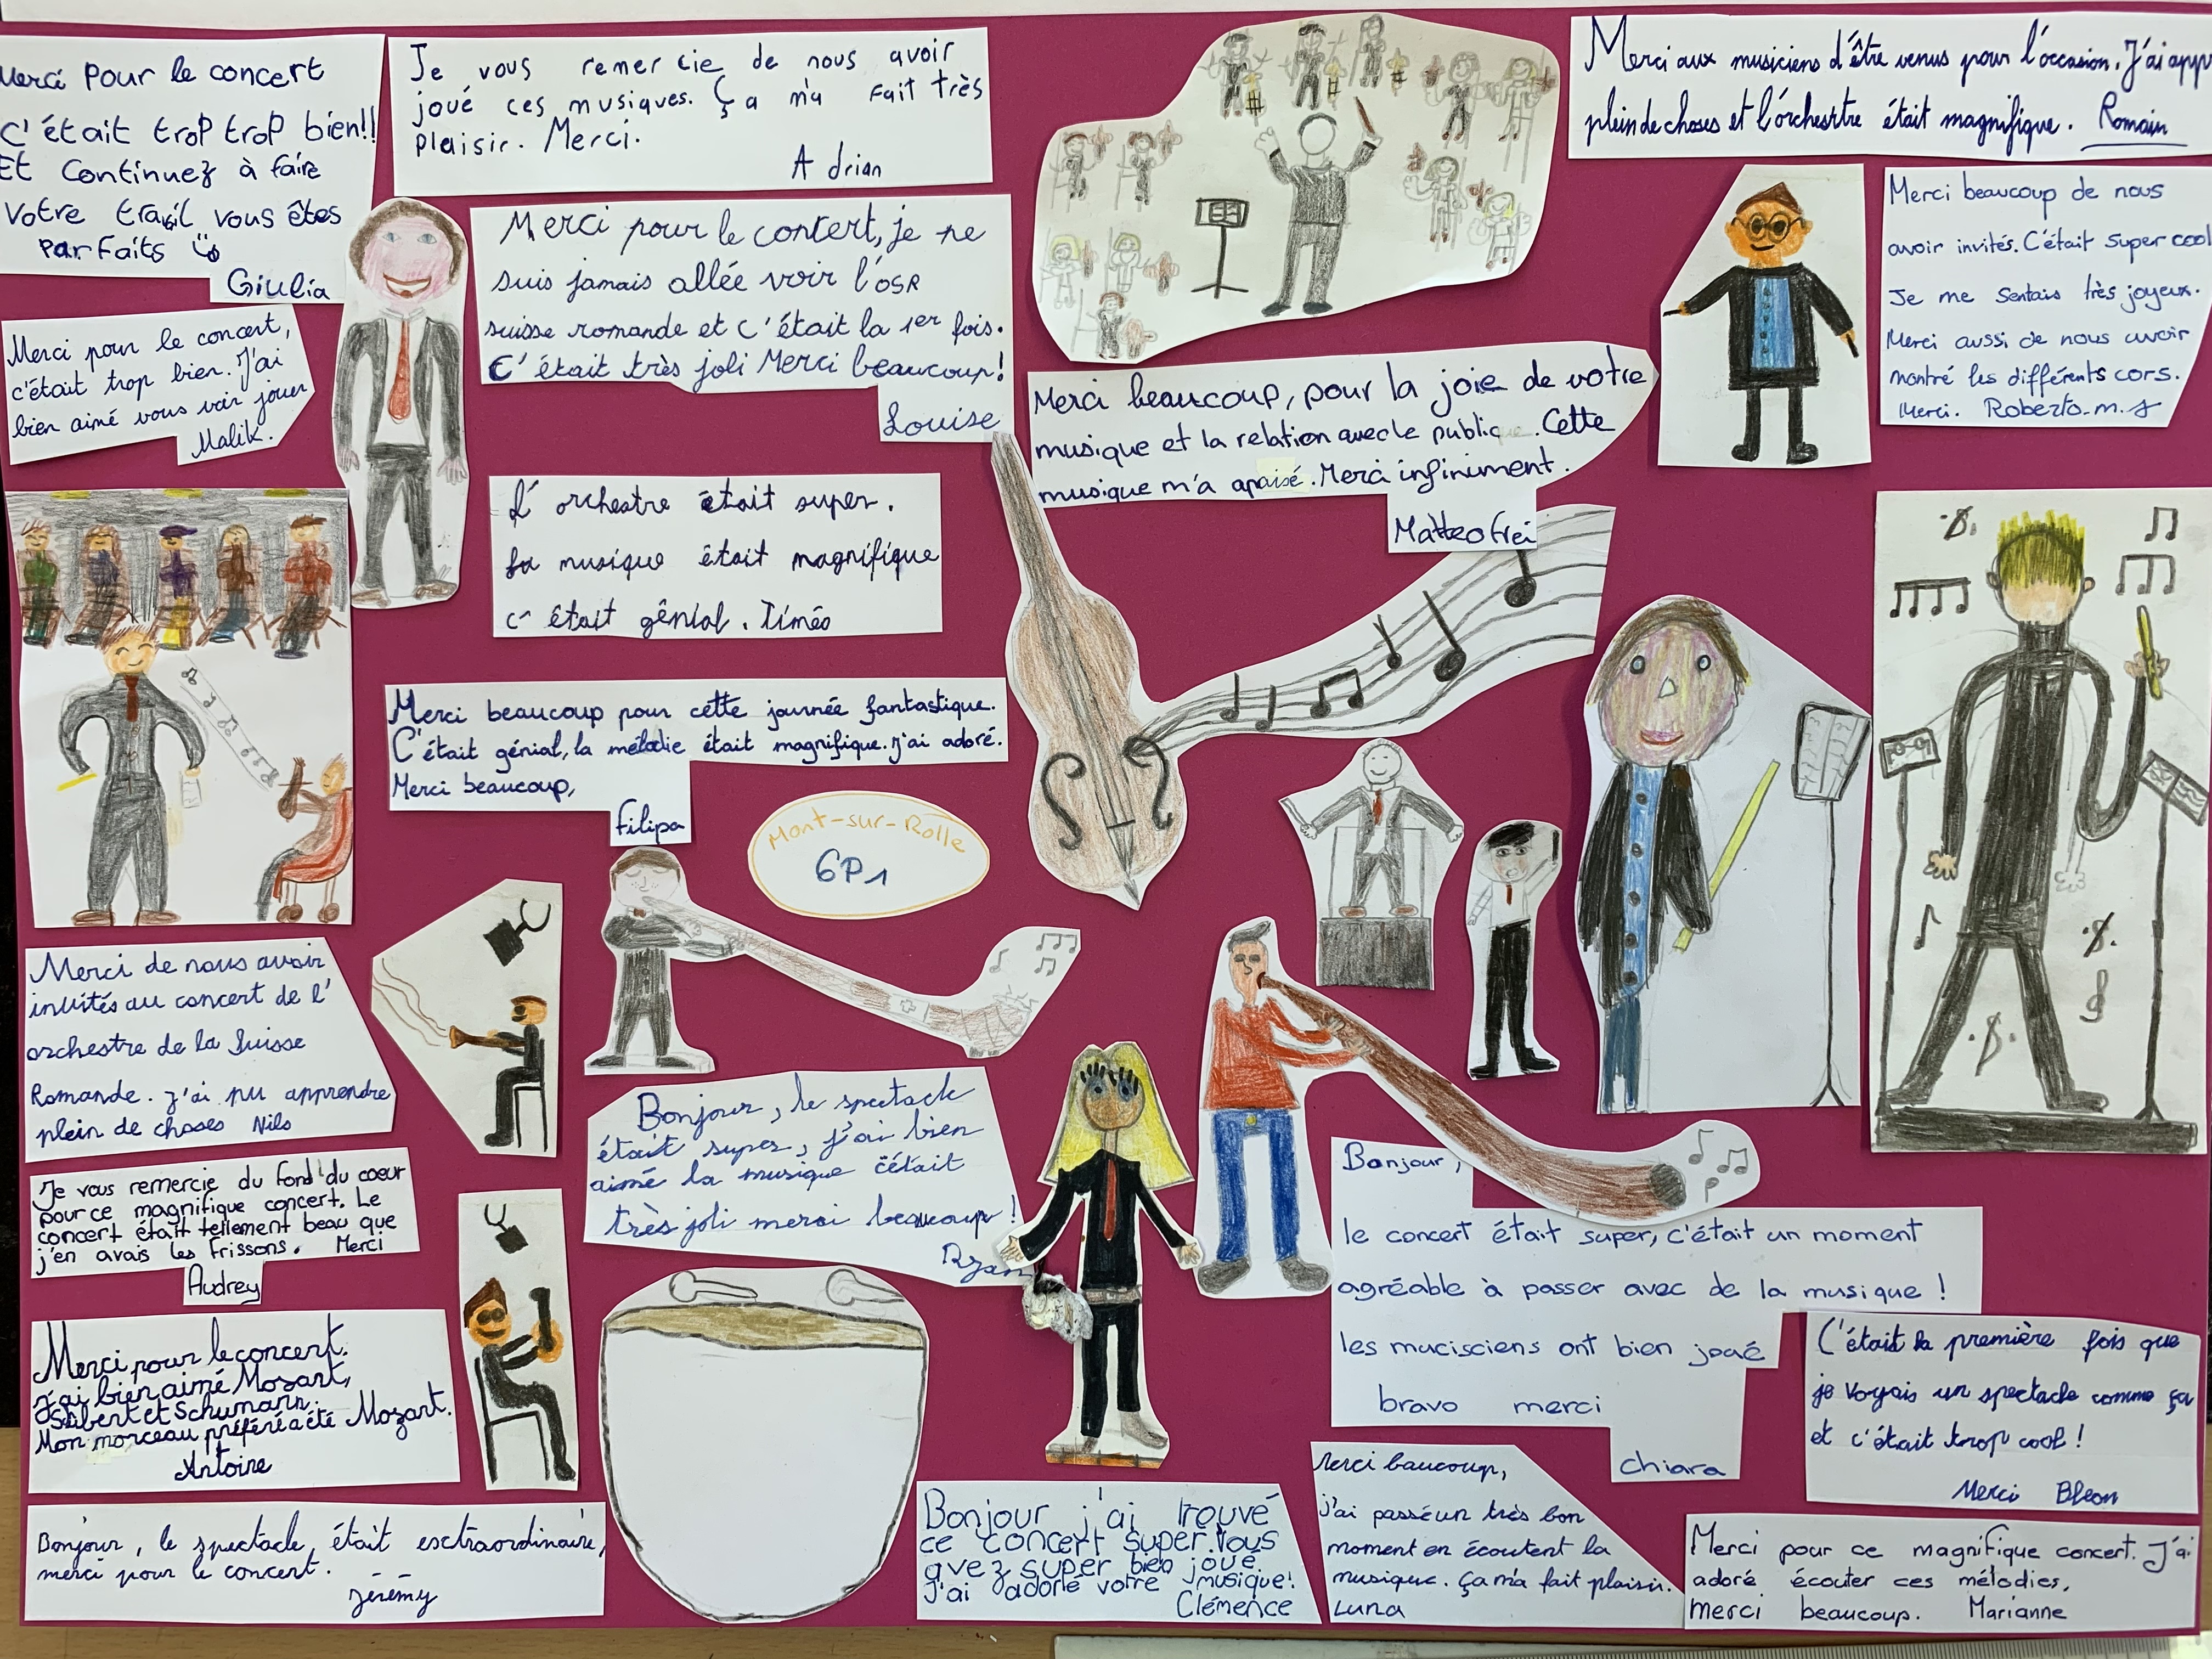 Merci pour le concert
C'était trop trop bien!!
Et continuez à faire
votre travil vous êtes
parfaits
Giulia
Je vous remercie de nous avoir
joué ces musiques. Ça m'a fait très
plaisir. Merci.
Adrian
Merci aux musiciens d'être venus pour l'occasion. J'ai app
plein de choses et l'orchesrtre était magnifique. Romain
Merci beaucoup de nous
avoir invités. C'était super cool
Je me sentais très joyeux.
Merci aussi de nous avoir
montré les différents cors.
Merci. Roberto.m.
Merci pour le concert, je ne
suis jamais allée voir l'OSR
suisse romande et c'était la 1er fois.
C'était très joli Merci beaucoup!
Louise
Merci pour le concert,
c'était trop bien. J'ai
bien aimé vous voir jouer
Malik.
Merci beaucoup, pour la joie de votre
musique et la relation avec le publique. Cette
musique m'a apaisé. Merci infiniment.
Matteo Frei
L'orchestre était super.
La musique était magnifique
c'était génial. Timéo
Merci beaucoup pour cette journée fantastique.
C'était génial, la mélodie était magnifique. J'ai adoré.
Merci beaucoup,
Filipa
Mont-sur-Rolle
6P1
Merci de nous avoir
invités au concert de l'
orchestre de la Suisse
Romande. J'ai pu apprendre
plein de choses Nils
Bonjour, le spectacle
était super, j'ai bien
aimé la musique c'était
très joli merci beaucoup!
Ryan
Je vous remercie du fond du coeur
pour ce magnifique concert. Le
concert était tellement beau que
j'en avais les frissons. Merci
Audrey
Bonjour,
le concert était super, c'était un moment
agréable à passer avec de la musique!
les mucisciens ont bien joué
bravo merci
chiara
Merci pour le concert.
J'ai bien aimé Mozart,
et Schumann.
Mon morceau préféré a été Mozart.
Antoine
C'était la première fois que
je voyais un spectacle comme ça
et c'était trop cool!
Merci Bleon
Bonjour, le spectacle était esctraordinaire,
merci pour le concert.
Jérémy
Bonjour j'ai trouvé
ce concert super. Vous
avez super bien joué.
J'ai adorlé votre musique!
Clémence
Merci baucoup,
j'ai passé un très bon
moment en écoutent la
musique. Ça m'a fait plaisir.
Luna
Merci pour ce magnifique concert. J'ai
adoré écouter ces mélodies,
merci beaucoup. Marianne